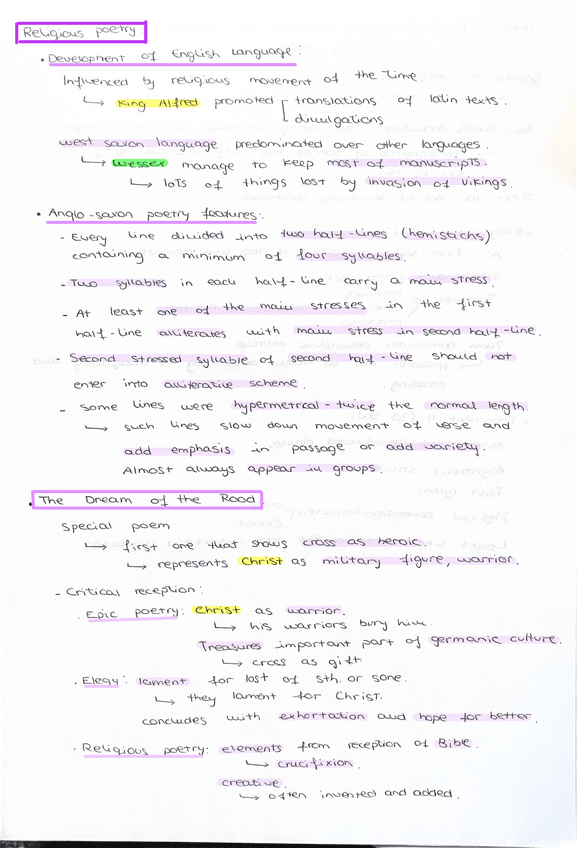 Religious poetry
• Development of English Language:
Influenced by religious movement of the time.
↳ King Alfred promoted translations of latin texts.
divulgations
west saxon language predominated over other languages.
↳ wessex manage to keep most of manuscripts.
↳ loTs of things lost by invasion of Vikings.
• Anglo-saxon poetry features:
- Every line divided into two half-lines (hemistichs)
containing a minimum of four syllables.
- Two syllables in each half-line carry a main stress.
- At least one of the main stresses in the first
half-line alliterates with main stress in second half-line.
- Second stressed syllable of second half-line should not
enter into alliterative scheme.
- Some lines were hypermetrical - twice the normal length.
↳ such lines slow down movement of verse and
add emphasis in passage or add variety.
Almost always appear in groups.
• The Dream of the Rood
Special poem
↳ first one that shows cross as heroic.
↳ represents Christ as military figure, warrior.
- Critical reception:
· Epic poetry: Christ as warrior.
↳ his warriors bury him.
Treasures important part of germanic culture.
↳ cross as gift.
· Elegy: lament for lost of sth. or sone.
↳ they lament for Christ.
concludes with exhortation and hope for better.
· Religious poetry: elements from reception of Bible.
↳ crucifixion.
creative.
↳ often invented and added.